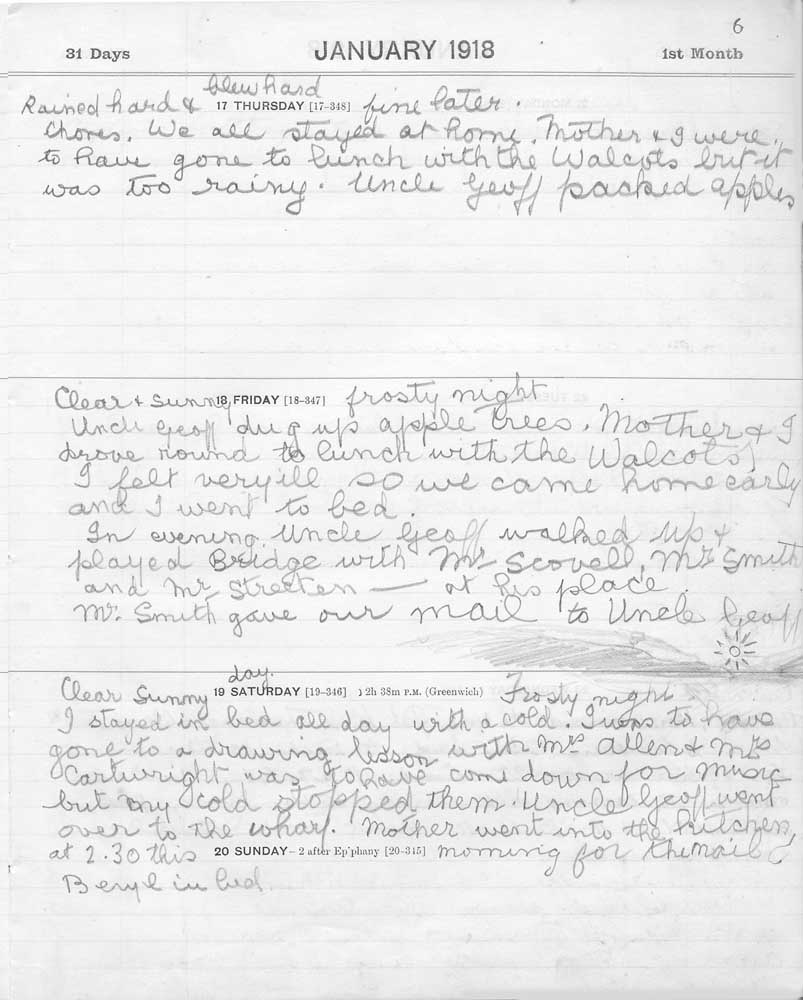 6
31 Days JANUARY 1918 1st Month
blew hard
Rained hard & 17 THURSDAY [17-348] fine later.
Chores. We all stayed at home. Mother & I were
to have gone to lunch with the Walcots but it
was too rainy. Uncle Geoff packed apples
Clear & sunny 18 FRIDAY [18-347] frosty night
Uncle Geoff dug up apple trees. Mother & I
drove round to lunch with the Walcots,
I felt very ill so we came home early
and I went to bed.
In evening Uncle Geoff walked up &
played Bridge with Mr Scovell, Mr Smith
and Mr Streeten — at his place.
Mr. Smith gave our mail to Uncle Geoff
day.
Clear Sunny 19 SATURDAY [19-346] ☽ 2h 38m P.M. (Greenwich) Frosty night
I stayed in bed all day with a cold. I was to have
gone to a drawing lesson with Mrs Allen & Mrs
Cartwright was to have come down for music
but my cold stopped them. Uncle Geoff went
over to the wharf. Mother went into the kitchen,
at 2.30 this 20 SUNDAY—2 after Ep'phany [20-345] morning for the mail
Beryl in bed.